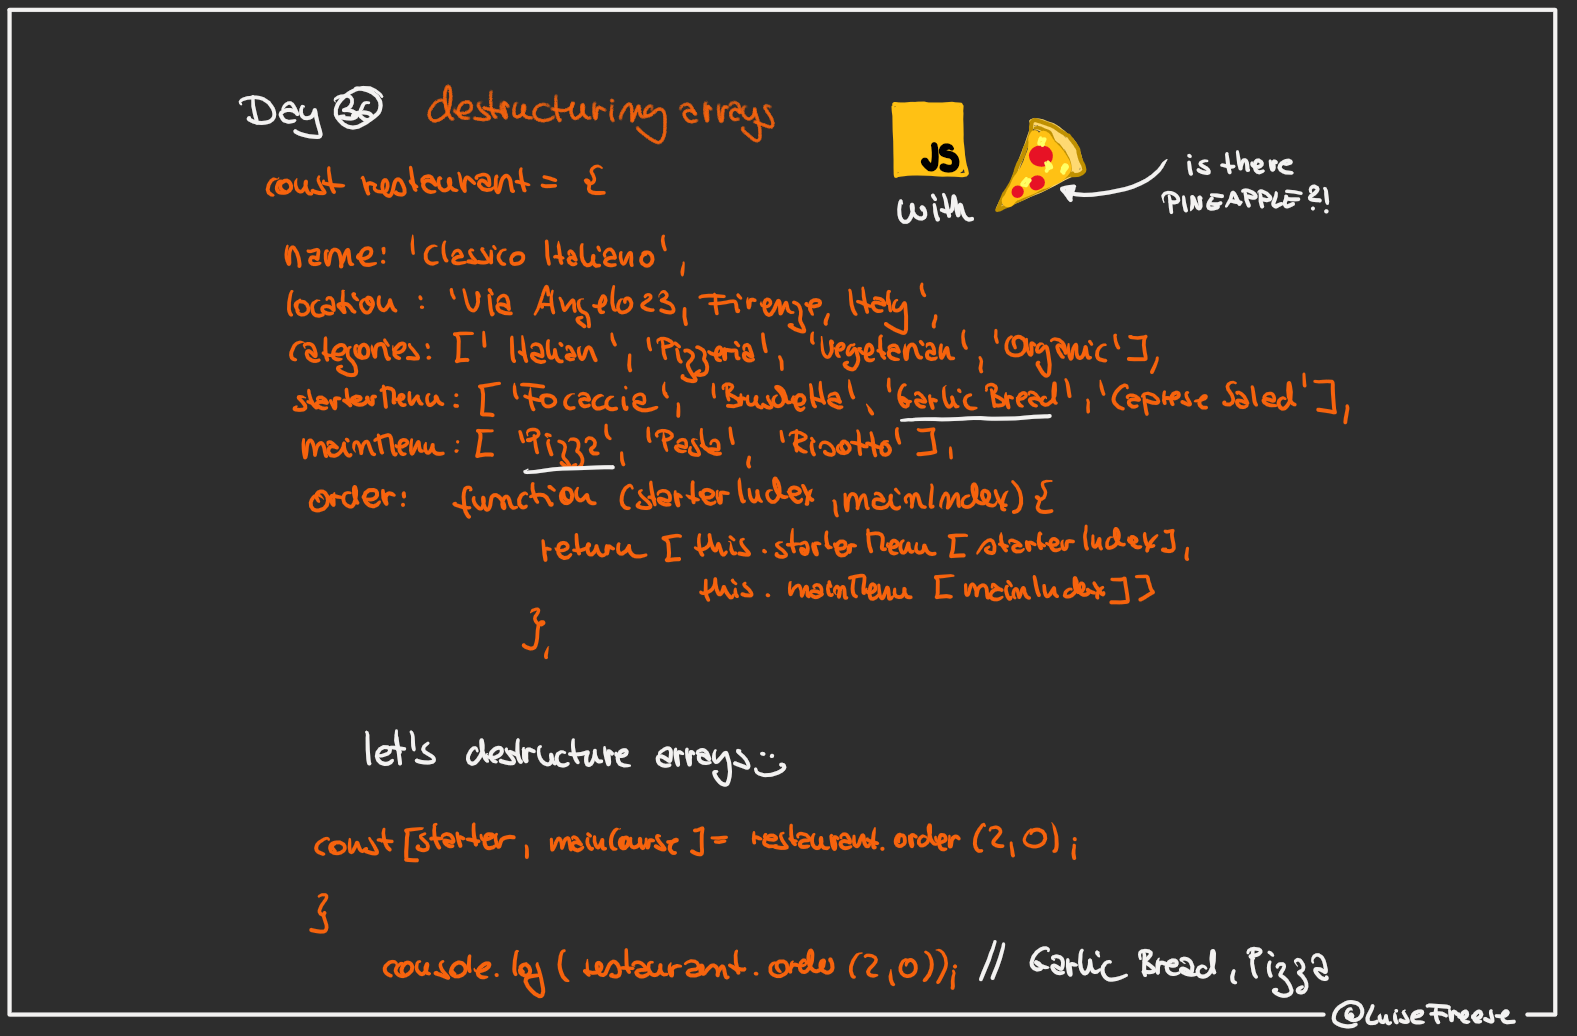 Day 36 destructuring arrays
JS
with
is there
PINEAPPLE?!
const restaurant = {
name: 'Classico Italiano',
location : 'Via Angelo 23, Firenze, Italy',
categories: ['Italian', 'Pizzeria', 'Vegetarian', 'Organic'],
starterMenu: ['Focaccia', 'Bruschetta', 'Garlic Bread', 'Caprese Salad'],
mainMenu: ['Pizza', 'Pasta', 'Risotto'],
order: function (starterIndex, mainIndex) {
return [this.starterMenu [starterIndex],
this.mainMenu [mainIndex]]
},
let's destructure arrays :)
const [starter, mainCourse] = restaurant.order (2,0);
}
console.log (restaurant.order (2,0)); // Garlic Bread, Pizza
@LuiseFreese